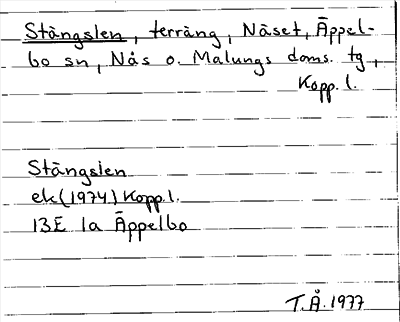 Stängslen, terräng, Näset, Äppel-
bo sn, Nås o. Malungs doms. tg,
Kopp. l.
Stängslen
ek (1974) Kopp. l.
13E 1a Äppelbo
T.Å. 1977